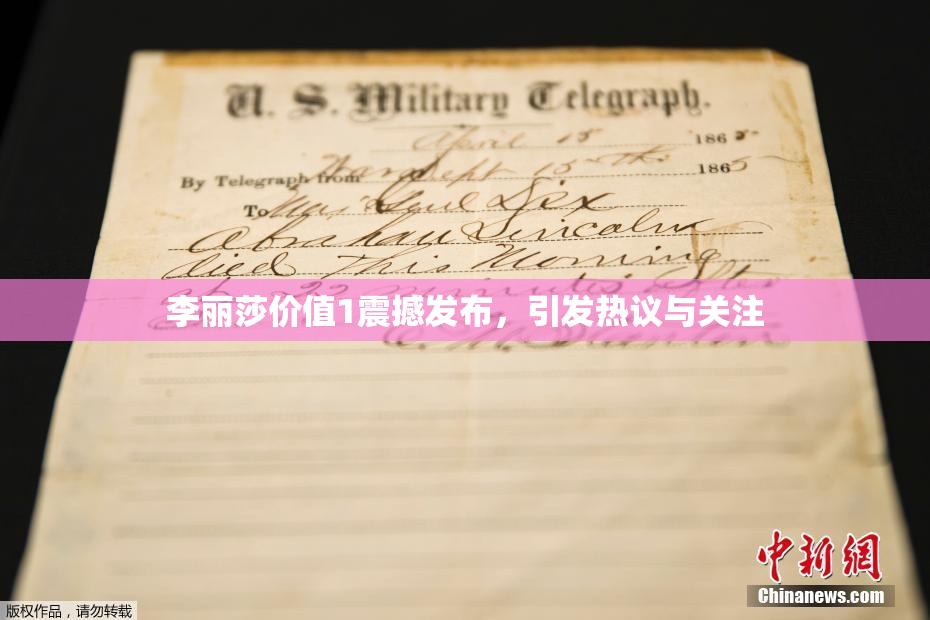 U. S. Military Telegraph.
April 15 1865
By Telegraph from War Dept 15th 1865
To Maj Genl Dix
Abraham Lincoln
died This Morning
at 22 minutes after
李丽莎价值1震撼发布，引发热议与关注
E. M. Stanton
中新网
Chinanews.com
版权作品，请勿转载